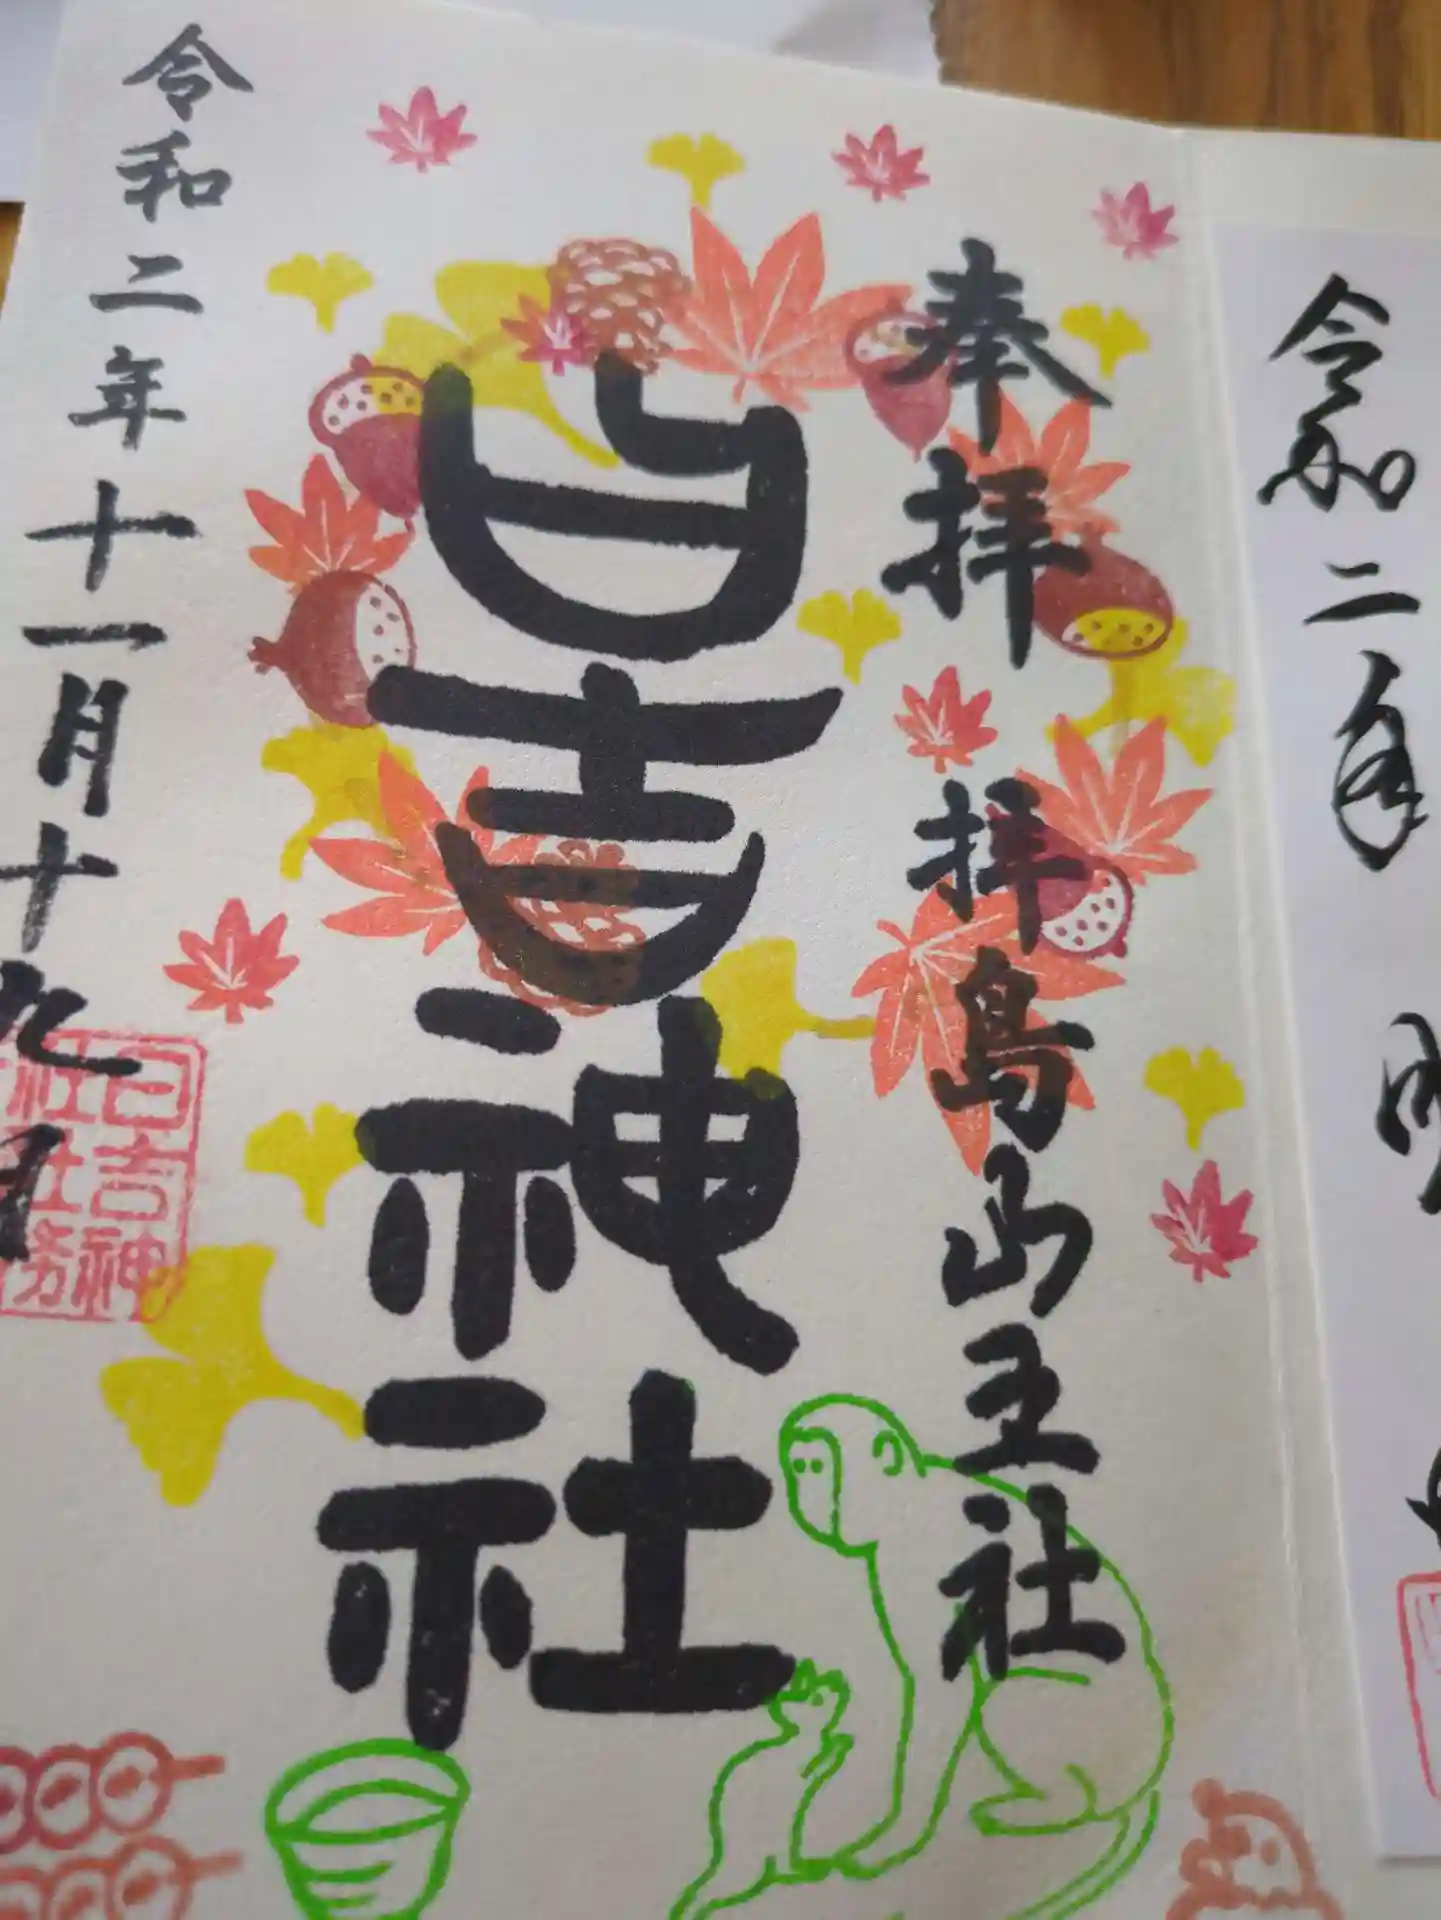 令和二年
奉拝
拝島山王社
日吉神社
令和二年十一月十九日
日吉神
社社務